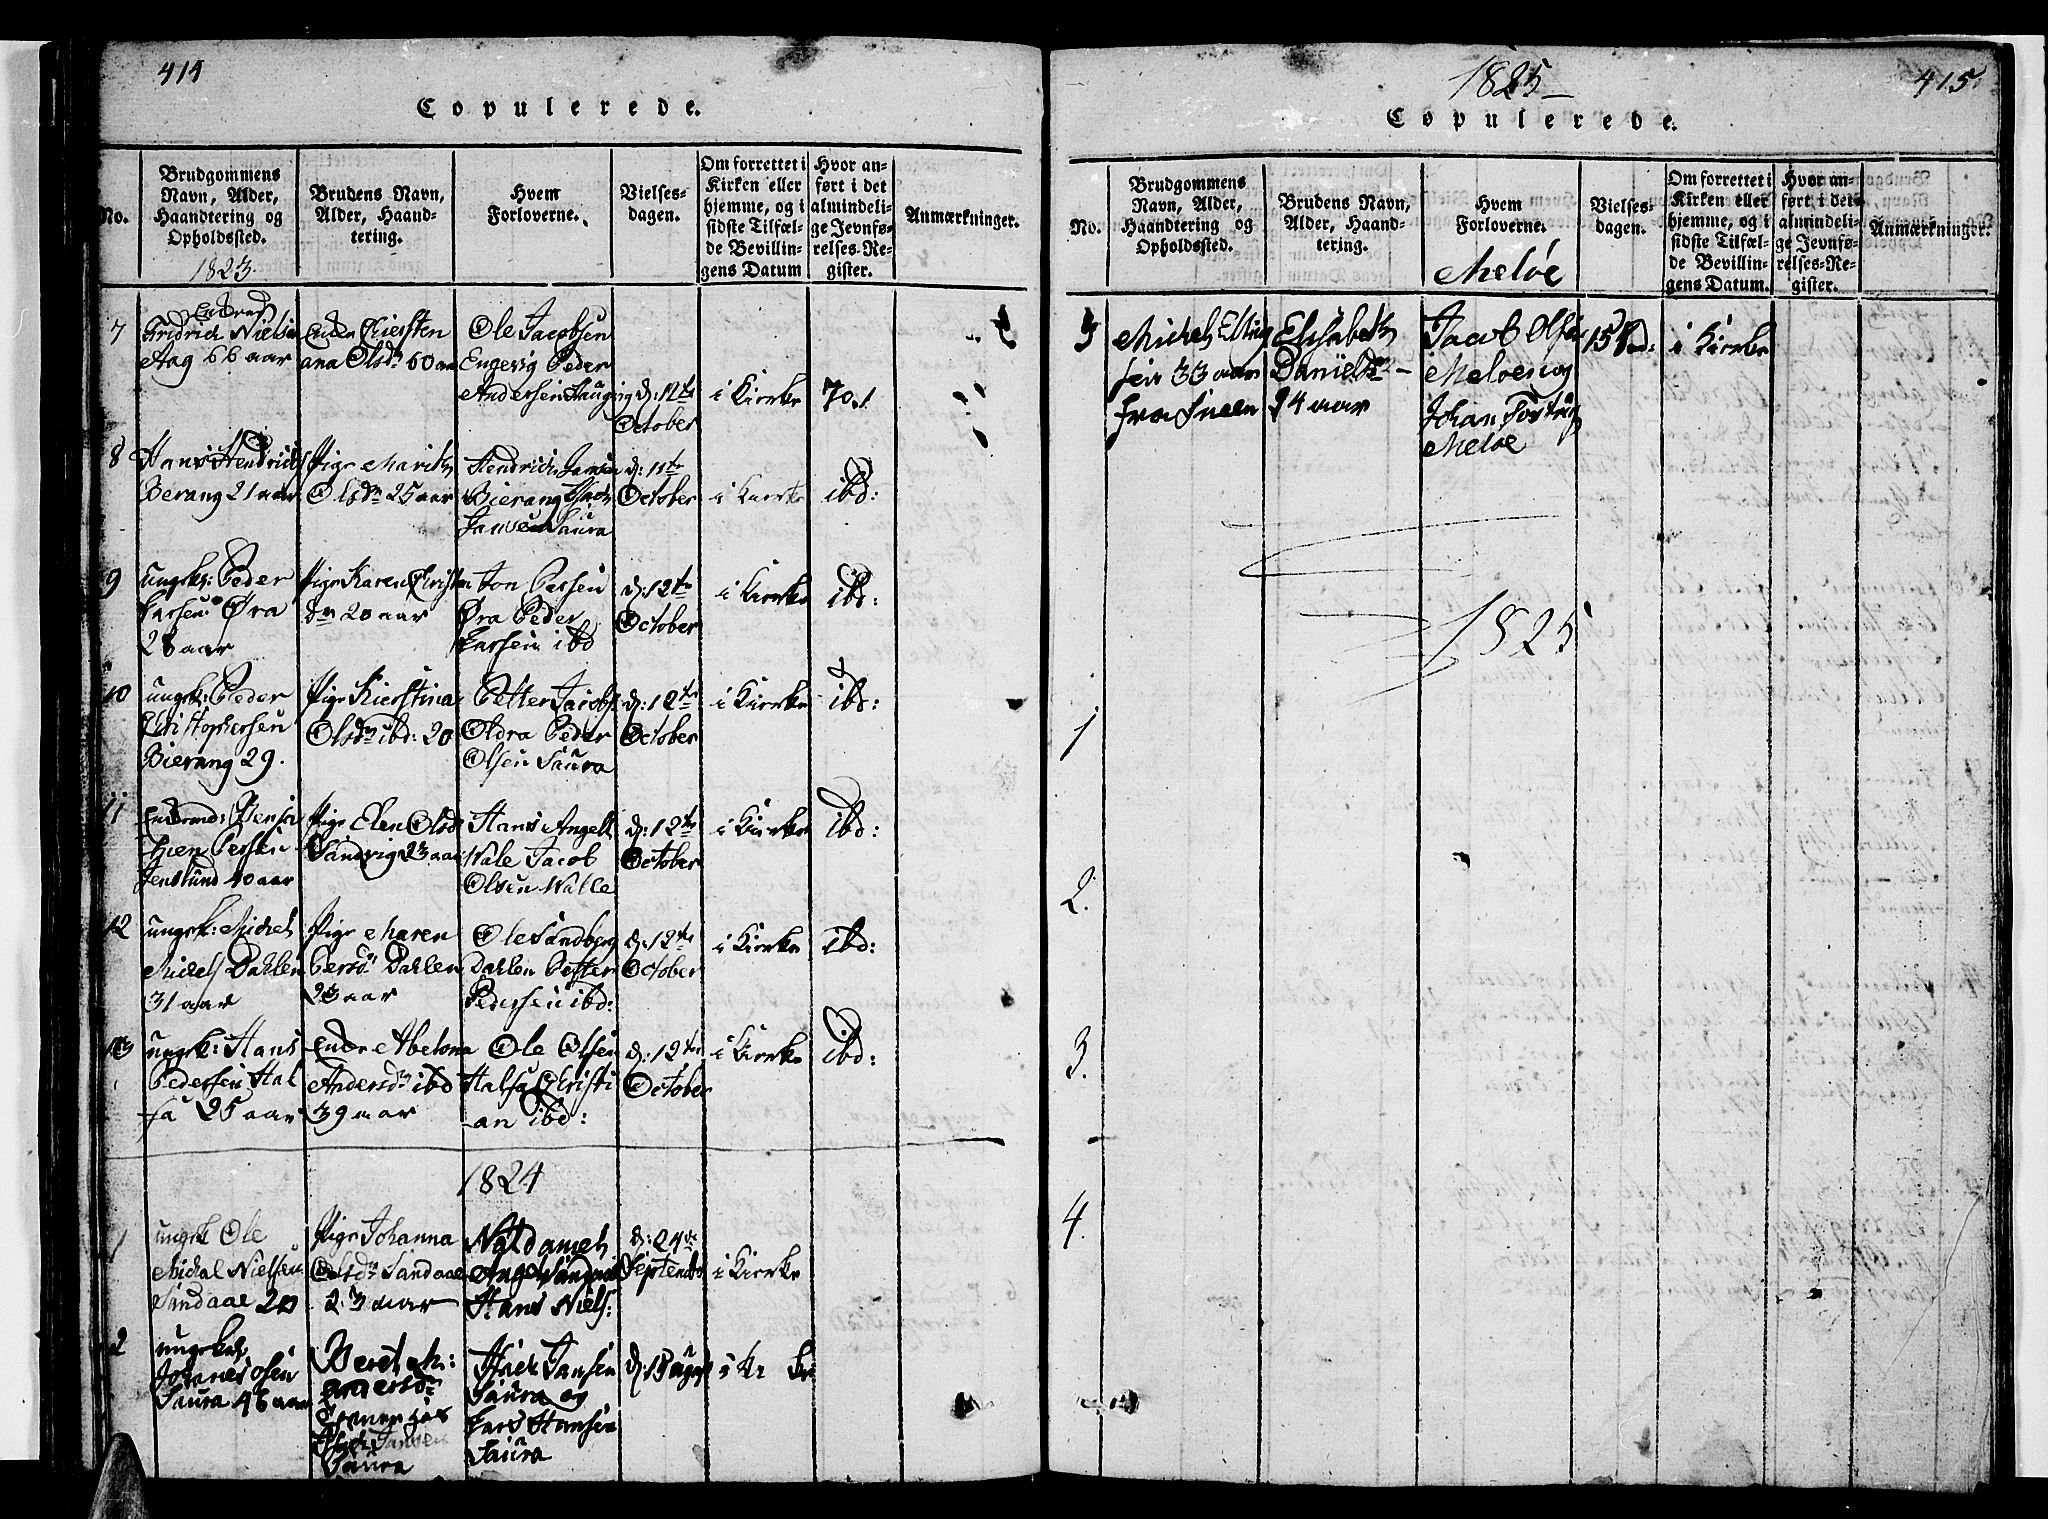 414
Copulerede.
No.
Brudgommens
Navn, Alder,
Haandtering og
Opholdssted.
1823.
Brudens Navn,
Alder, Haand-
tering.
Hvem
Forloverne.
Vielses-
dagen.
Om forrettet i
Kirken eller
hjemme, og i
sidste Tilfæl-
de Bevillin-
gens Datum
Hvor an-
ført i det
almindeli-
ge Jevnfø-
relses-Re-
gister.
Anmærkninger.
7
Fredrich Nielsen
Aag 66 aar
Enken Kiersten
ana Olsdr 60 aar
Ole Jacobsen
Engevig Peder
Andersen Haugvig
d: 12te
October
i Kirke
70.
8
Hans Hendrichs
Bierang 21 aar
Pige Marith
Olsdr 25 aar
Hendrich Jansen
Bierang
Jansen Saura
d: 11te
October
i Kirke
ibd:
9
ungk: Peder
Larsen Øra
28 aar
Pige Karen Christen
dr 20 aar
Jon Larsen
Øra Peder
Larsen ibd
d: 12te
October
i Kirke
ibd:
10
ungk: Peder
Christophersen
Bierang 29.
Pige Kierstina
Olsdr ibd: 20
Petter Jacobs
Oldra Peder
Olsen Saura
d: 12te
October
i Kirke
ibd:
11
Enkemand: Benja
Persen
Jenslund 40 aar
Pige Elen Olsd
Sandvig 23 aar
Hans Angell
Wale Jacob
Olsen Walle
d: 12te
October
i Kirke
ibd:
12
ungk: Michel
Michels Dahlen
31 aar
Pige Maren
Persdr Dahlen
23 aar
Ole Sandberg
Dahlen Petter
Pedersen ibd:
d: 12te
October
i Kirke
ibd:
13
ungk: Hans
Pedersen Hal
sa 25 aar
Enke Abelona
Andersdr ibd
39 aar
Ole Olsen
Halsa Christi
an ibd:
d: 12te
October
i Kirke
ibd:
1824
1
ungk Ole
Michal Nielsen
Sandaae 20
Pige Johanna
Olsdr Sandaae
23 aar
Hans Niels:
d: 24de
Septemb
i Kirke
2
ungkarl
Johannes Olsen
Saura 46 aar
Beret M:
andersdr
Jansen
Saura
Jansen
Saura og
Lars Hansen
Saura
1825
415
Copulerede.
No.
Brudgommens
Navn, Alder,
Haandtering og
Opholdssted.
Brudens Navn,
Alder, Haand-
tering.
Hvem
Forloverne.
Meløe
Vielses-
dagen.
Om forrettet i
Kirken eller
hjemme, og i
sidste Tilfæl-
de Bevillin-
gens Datum.
Hvor an-
ført, i det
almindeli-
ge Jevnfø-
relses-Re-
gister.
Anmærkninger.
3
Michel Elling
sen 33 aar
fra
Elisabeth
Danielsdr
24 aar
Jacob Olsen
Meløen og
Johan
Meløe
i Kirke
1825
1
2.
3.
4.